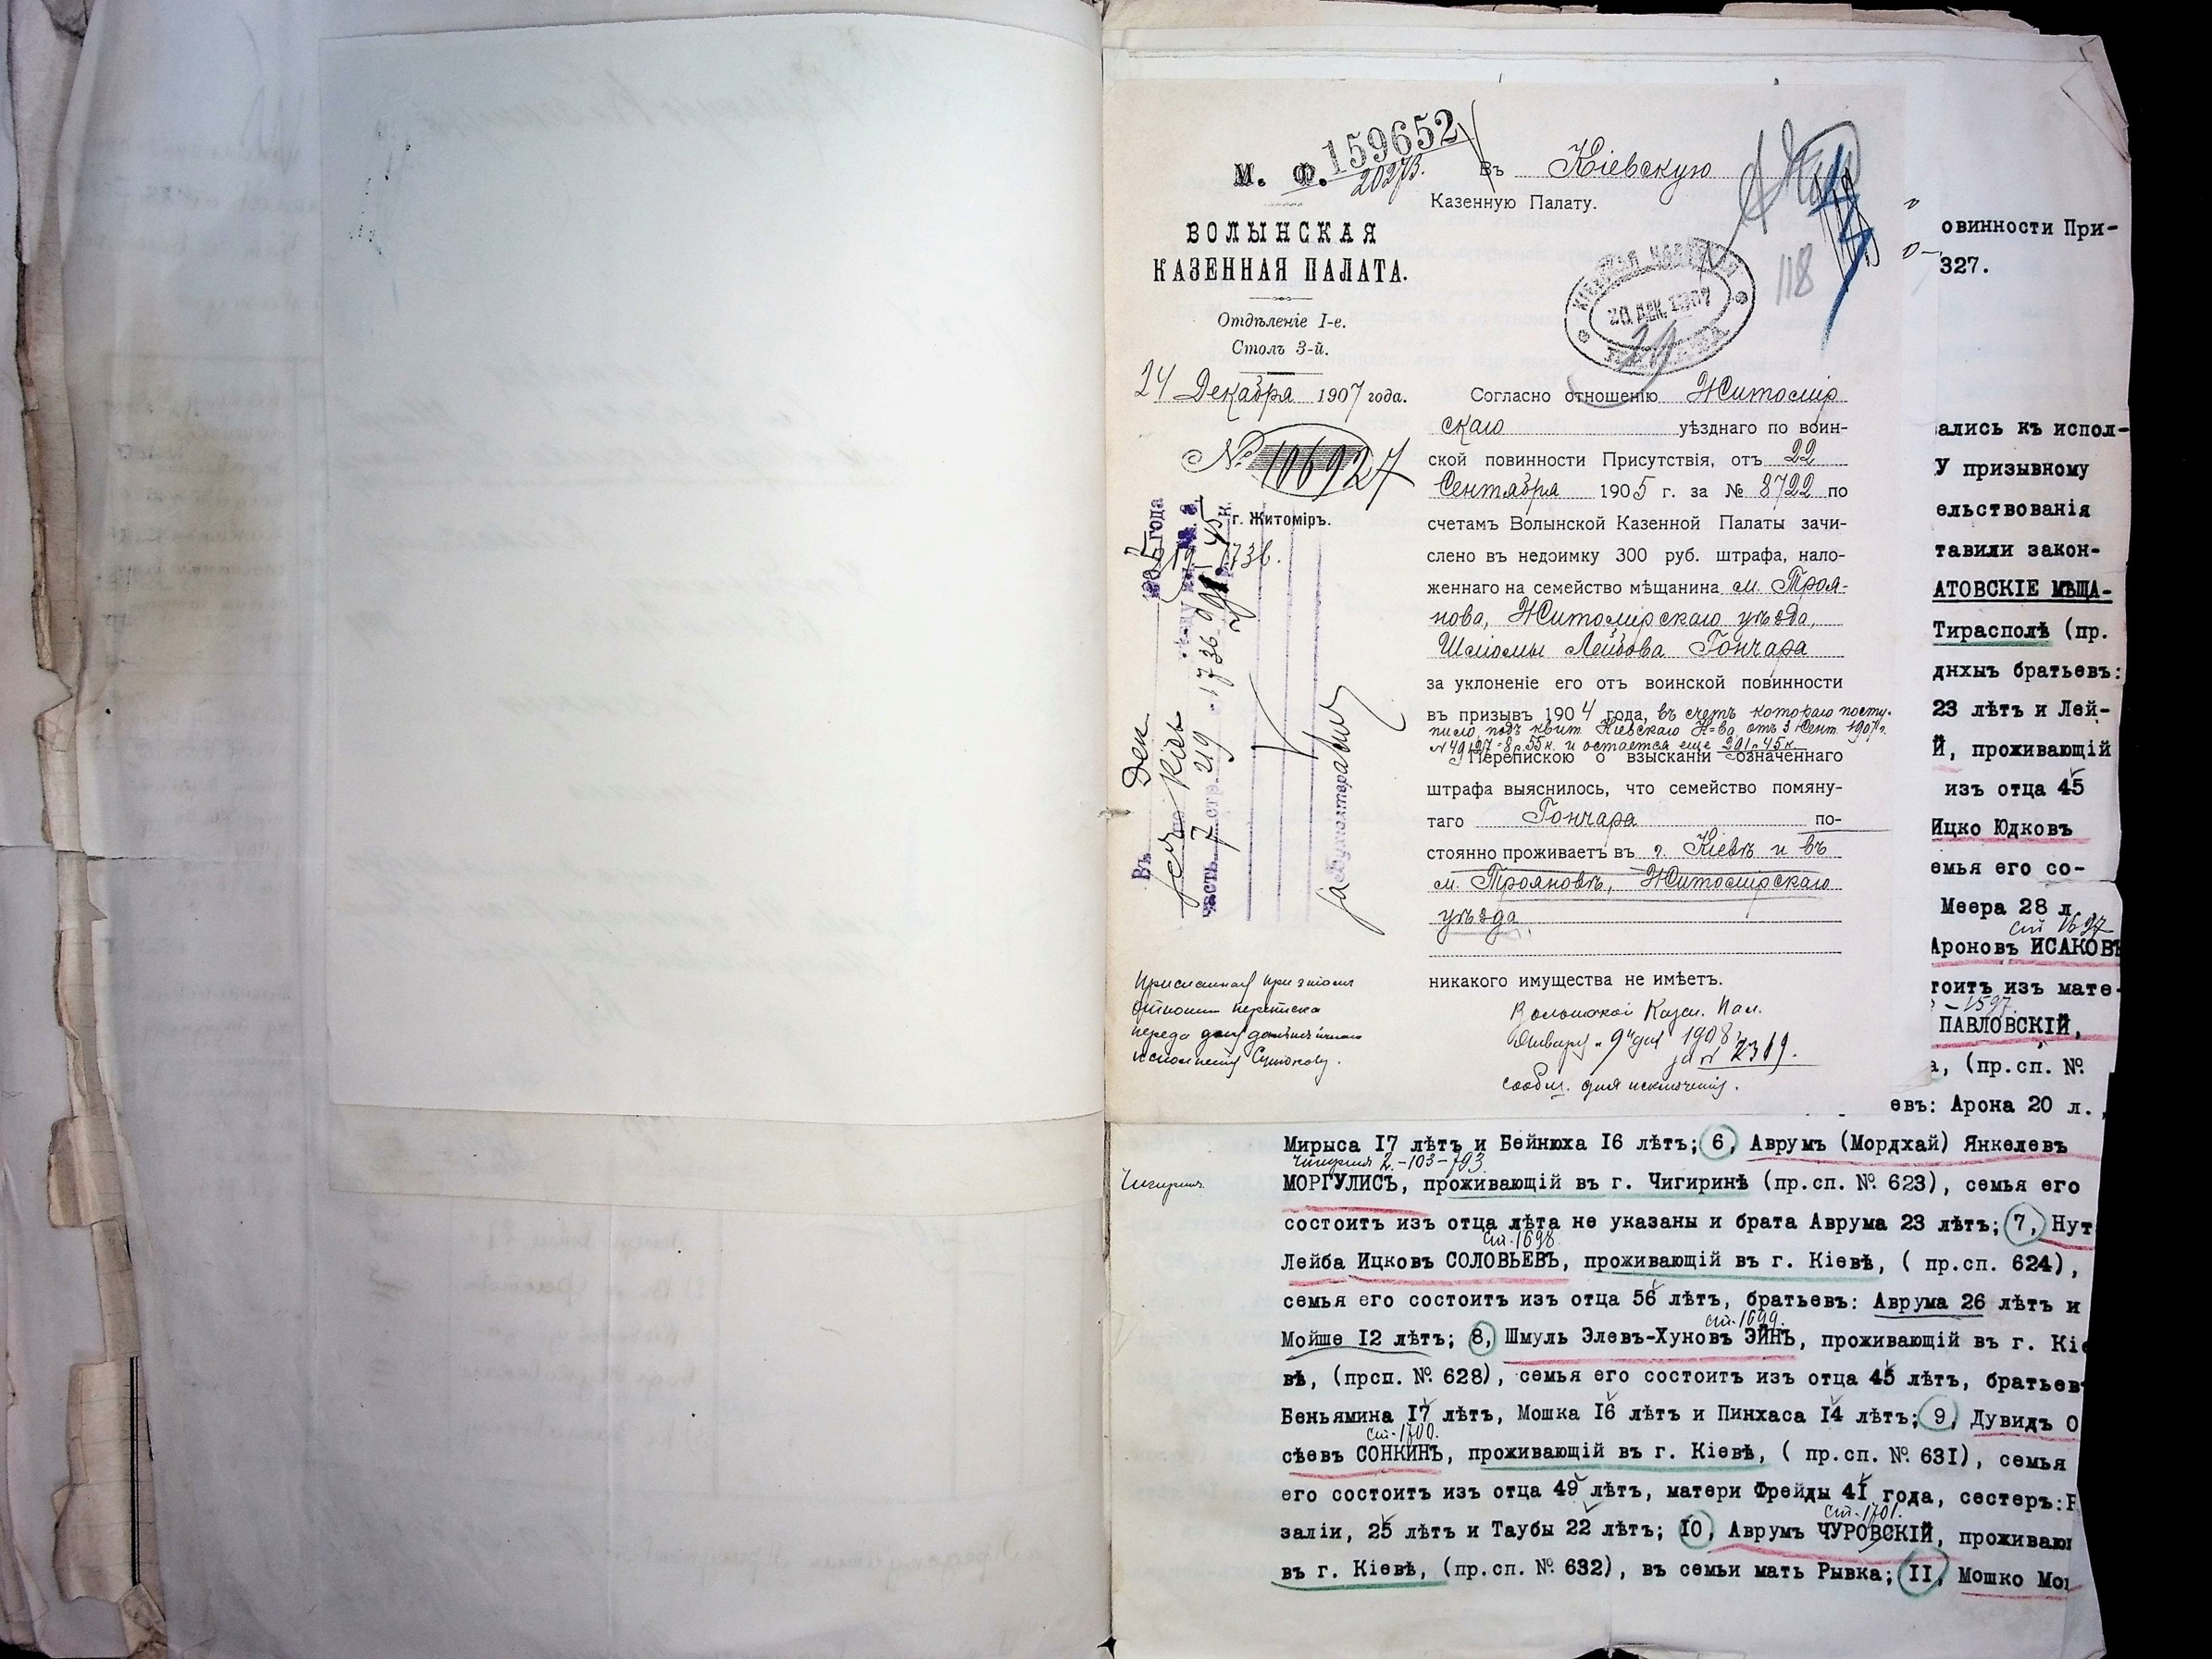 М. Ф.
159652
ВОЛЫНСКАЯ
КАЗЕННАЯ ПАЛАТА.
Отдѣленіе I-е.
Столъ 3-й.
24 Декабря 1907 года.
№ 106927
г. Житоміръ.
Въ Кіевскую
Казенную Палату.
20 ДЕК. 1907
118
Согласно отношенію Житомір
скаго уѣзднаго по воин-
ской повинности Присутствія, отъ 22
Сентября 1905 г. за № 8722 по
счетамъ Волынской Казенной Палаты зачи-
слено въ недоимку 300 руб. штрафа, нало-
женнаго на семейство мѣщанина м. Троя-
нова, Житомірскаго уѣзда,
Шліомы Лейбова Гончара
за уклоненіе его отъ воинской повинности
въ призывъ 1904 года, въ счетъ котораго посту-
пило, подъ квит. Кіевскаго К-ва отъ 3 Сент. 1907 г.
8 р. 55 к. и остается еще 291 р. 45 к.
Перепискою о взысканіи означеннаго
штрафа выяснилось, что семейство помяну-
таго Гончара по-
стоянно проживаетъ въ г. Кіевѣ и въ
м. Трояновѣ, Житомірскаго
уѣзда
никакого имущества не имѣетъ.
Волынской Казен. Пал.
Января 9 дня 1908 г.
за № 2369.
сообщ. для исключенія.
Въ Дек 1905 года
часть 7 стр. 219
Бухгалтера
переписка
овинности При-
327.
ались къ испол-
У призывному
ельствованія
тавили закон-
АТОВСКІЕ МѢЩА-
Тирасполѣ (пр.
днхыъ братьевъ:
23 лѣтъ и Лей-
Й, проживающій
изъ отца 45
Ицко Юдковъ
емья его со-
Меера 28 л.
ст 1697
Ароновъ ИСАКОВЪ
тоитъ изъ мате-
1597.
ПАВЛОВСКІЙ,
а, (пр.сп. №
евъ: Арона 20 л.,
Мирыса I7 лѣтъ и Бейнюха I6 лѣтъ; 6, Аврумъ (Мордхай) Янкелевъ
Чигирин 2.-103-793.
Чигирин.
МОРГУЛИСЪ, проживающій въ г. Чигиринѣ (пр.сп. № 623), семья его
состоитъ изъ отца лѣта не указаны и брата Аврума 23 лѣтъ; 7, Нут
ст. 1698.
Лейба Ицковъ СОЛОВЬЕВЪ, проживающій въ г. Кіевѣ, ( пр.сп. 624),
семья его состоитъ изъ отца 56 лѣтъ, братьевъ: Аврума 26 лѣтъ и
ст. 1699.
Мойше I2 лѣтъ; 8, Шмуль Элевъ-Хуновъ ЭЙНЪ, проживающій въ г. Кіе
вѣ, (прсп. № 628), семья его состоитъ изъ отца 45 лѣтъ, братьев
Беньямина I7 лѣтъ, Мошка I6 лѣтъ и Пинхаса I4 лѣтъ; 9, Дувидъ О
ст. 1700.
сѣевъ СОНКИНЪ, проживающій въ г. Кіевѣ, ( пр.сп. № 63I), семья
его состоитъ изъ отца 49 лѣтъ, матери Фрейды 4I года, сестеръ: Р
ст. 1701.
заліи, 25 лѣтъ и Таубы 22 лѣтъ; I0, Аврумъ ЧУРОВСКІЙ, проживаю
въ г. Кіевѣ, (пр.сп. № 632), въ семьи мать Рывка; II, Мошко Мо